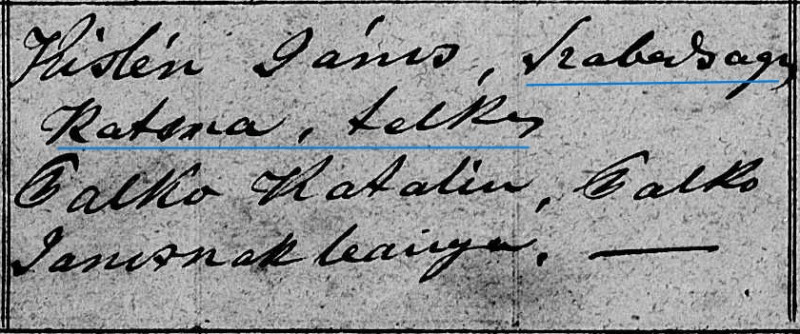 Kislén János, Szabadsagos
Katona, telkes
Falko Katalin, Falko
Janosnak leánya. —